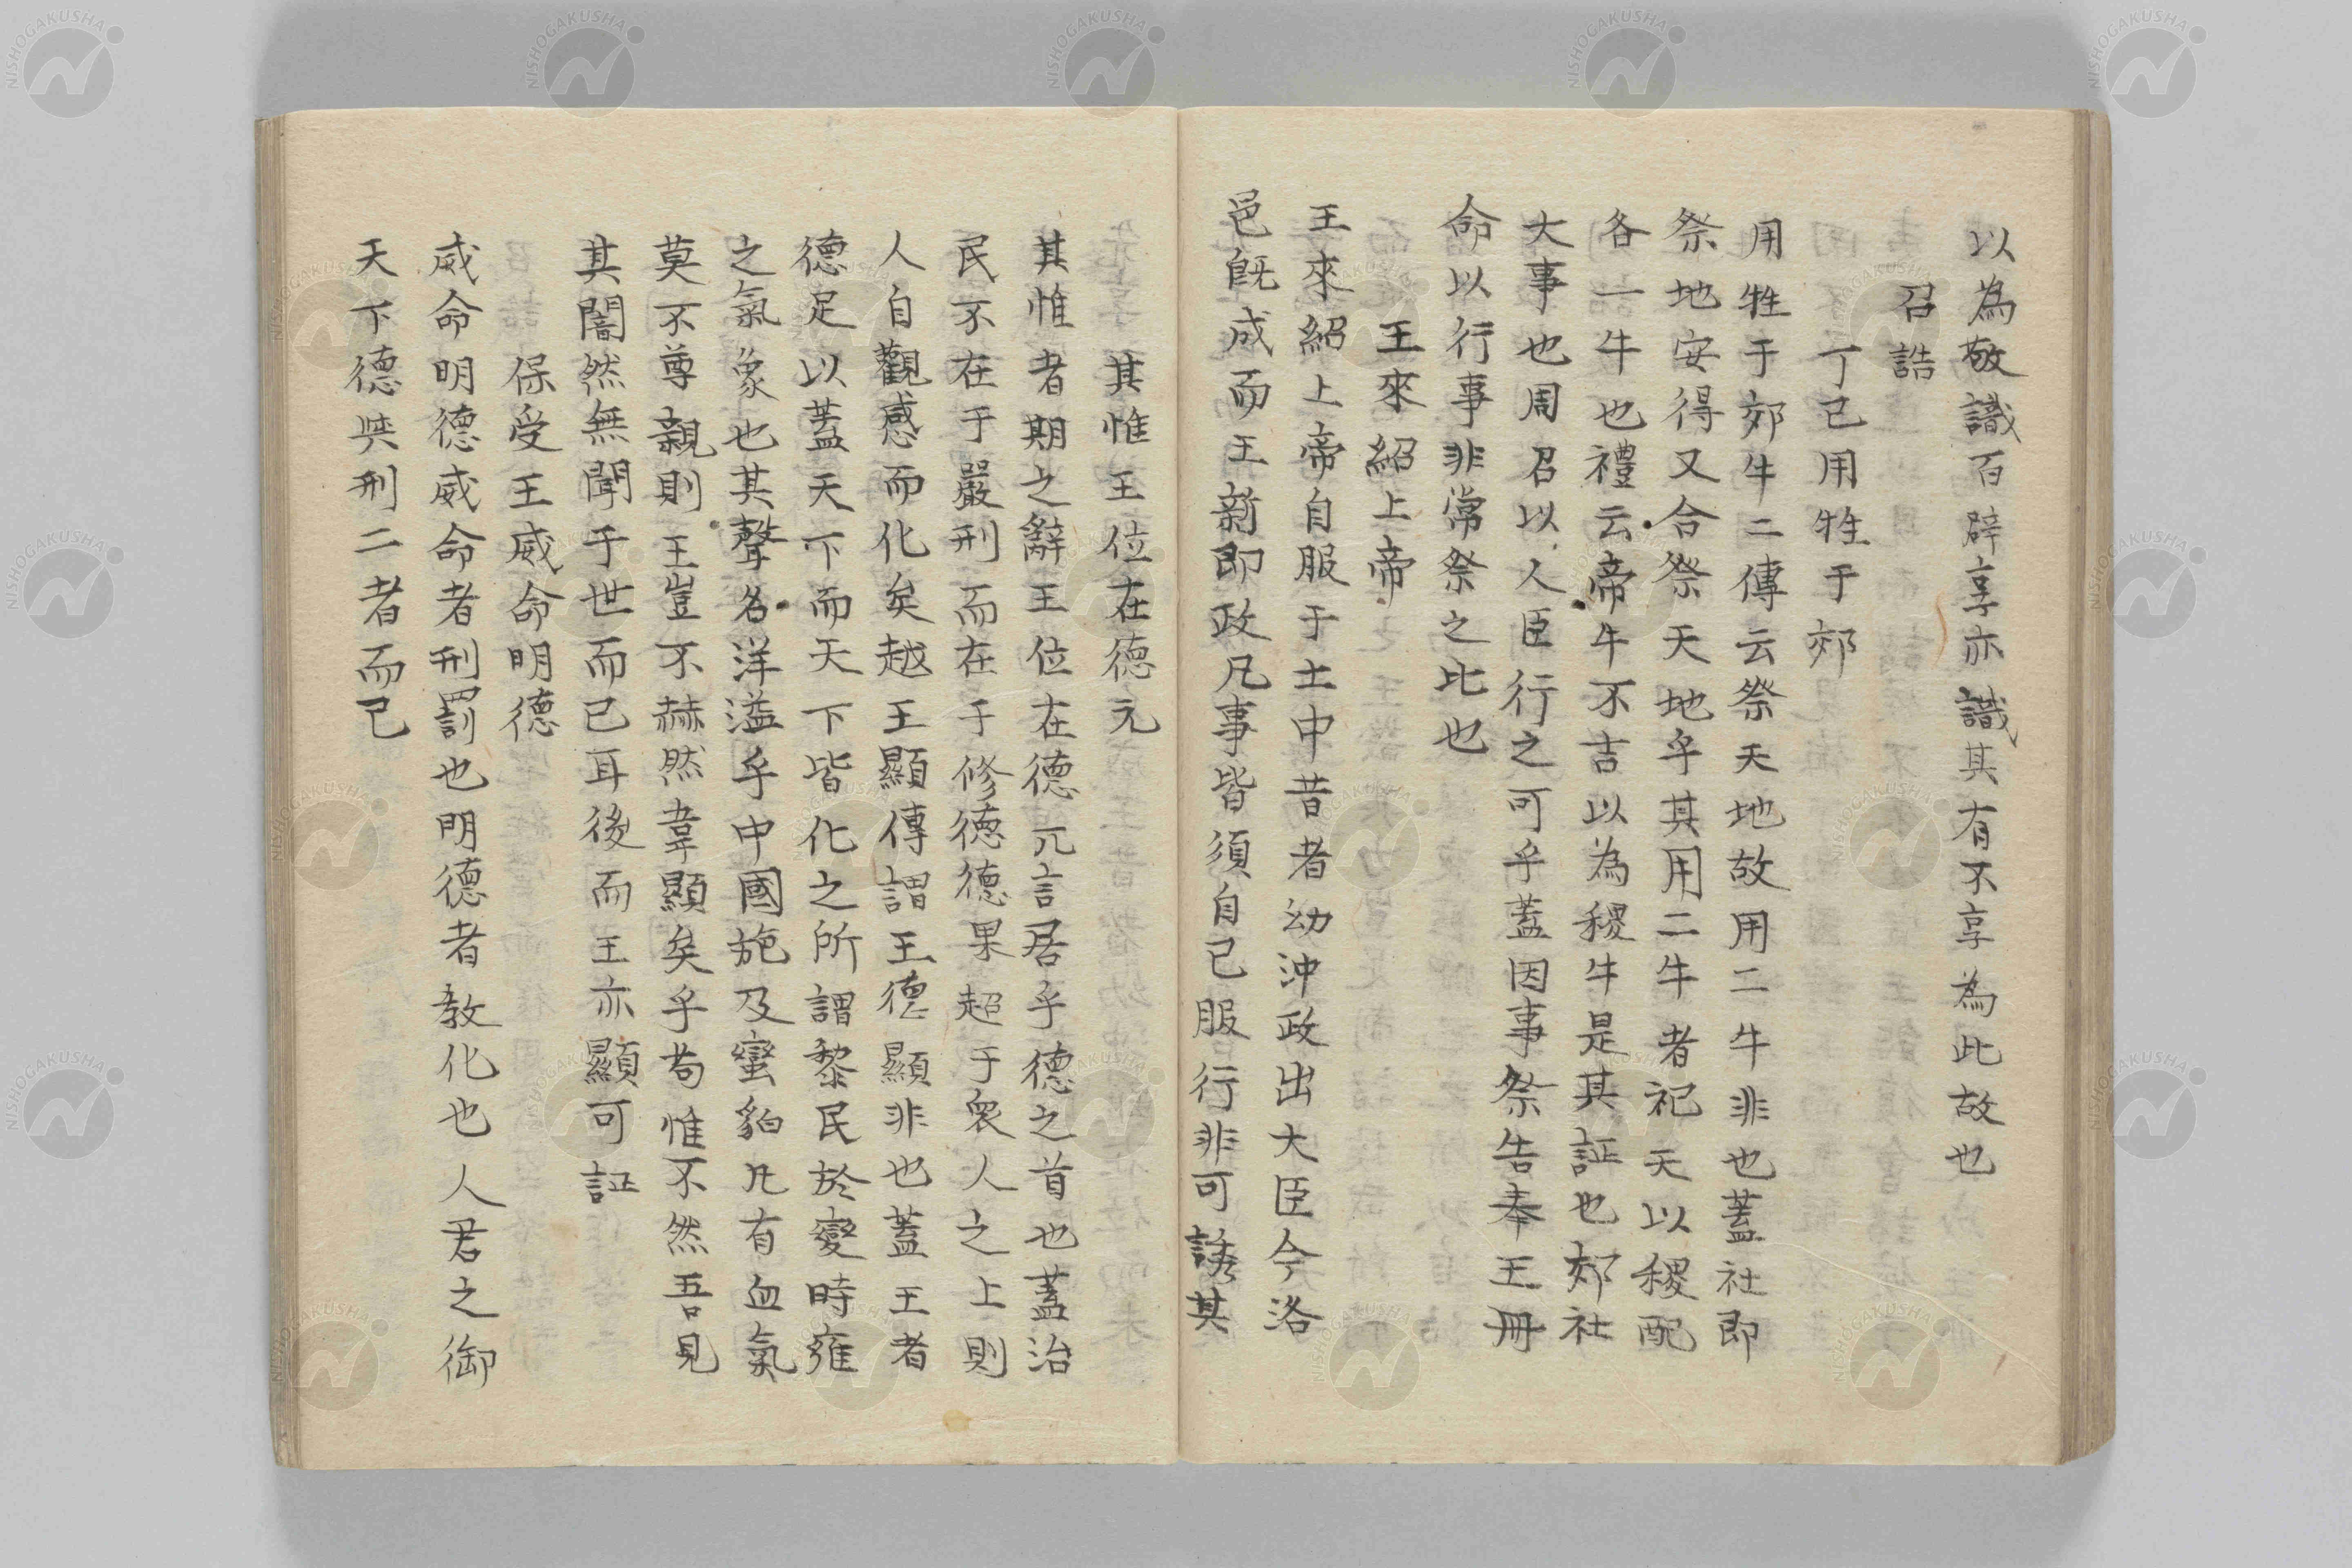 以為敬識百辟享亦識其有不享為此故也
召誥
丁已用牲于郊
用牲于郊牛二傳云祭天地故用二牛非也蓋社即
祭地安得又合祭天地乎其用二牛者祀天以稷配
各一牛也禮云帝牛不吉以為稷牛是其証也郊社
大事也周召以人臣行之可乎蓋因事祭告奉王冊
命以行事非常祭之比也
王來紹上帝
王來紹上帝自服于土中昔者幼沖政出大臣今洛
邑既成而王新即政凡事皆須自己服行非可諉其
其惟王位在德元
其惟者期之辭王位在德元言居乎德之首也蓋治
民不在于嚴刑而在于修德德果超于衆人之上則
人自觀感而化矣越王顯傳謂王德顯非也蓋王者
德足以蓋天下而天下皆化之所謂黎民於變時雍
之氣象也其聲名洋溢乎中國施及蠻貊凡有血氣
莫不尊親則王豈不赫然韋顯矣乎苟惟不然吾見
其闇然無聞于世而已耳後而王亦顯可証
保受王威命明德
威命明德威命者刑罰也明德者教化也人君之御
天下德與刑二者而已
NISHOGAKUSHA